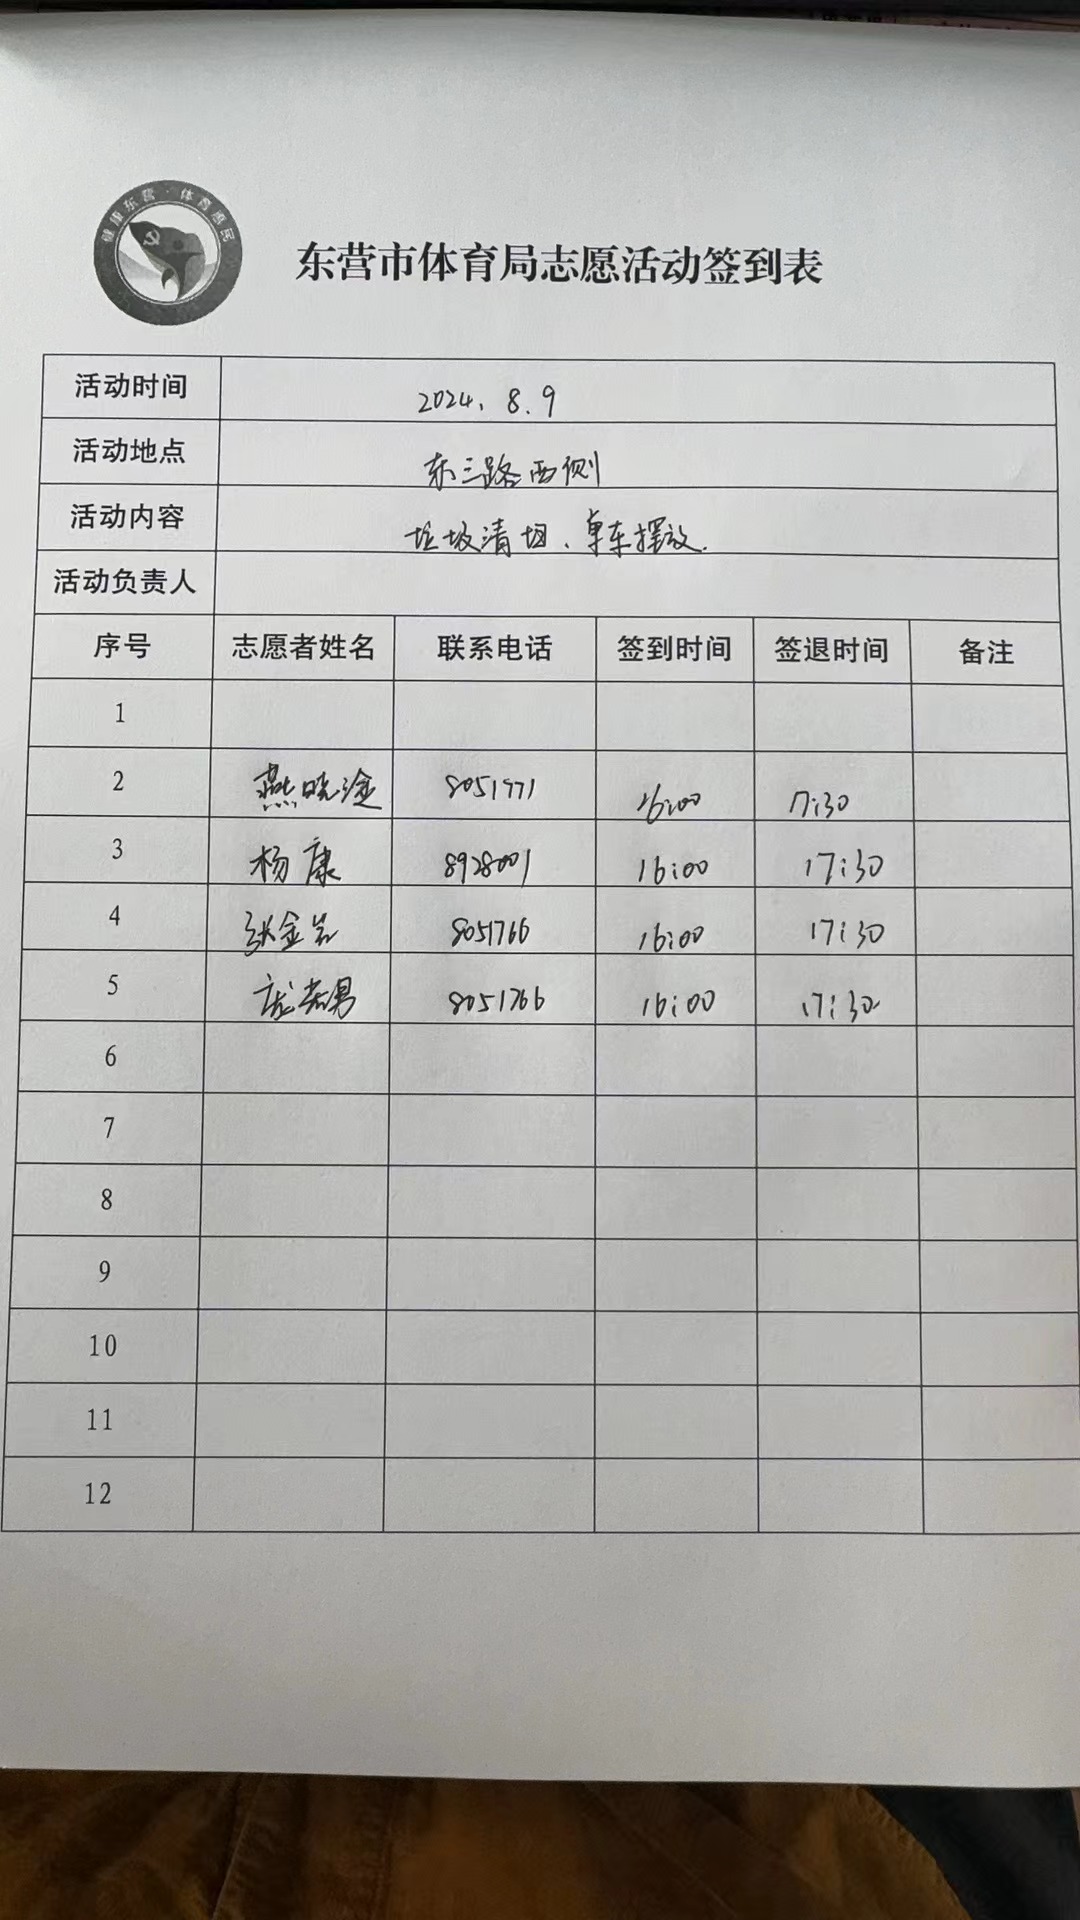 健康东营·体育惠民
东营市体育局志愿活动签到表
活动时间 2024.8.9
活动地点 东三路西侧
活动内容 垃圾清理、单车摆放.
活动负责人
序号 志愿者姓名 联系电话 签到时间 签退时间 备注
1
2 燕晓 16:00 17:30
3 杨康 8928001 16:00 17:30
4 张金 8051766 16:00 17:30
5 8051766 16:00 17:30
6
7
8
9
10
11
12